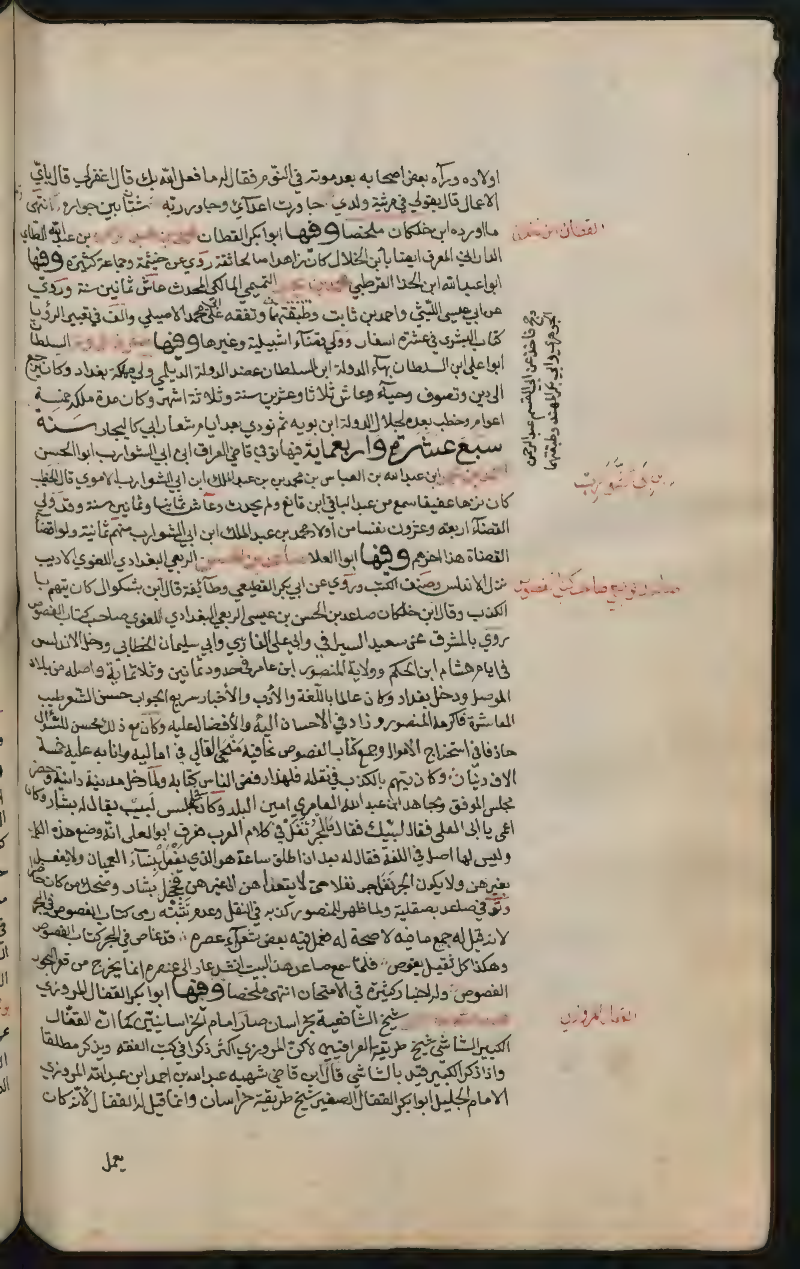 اولاده ورآه بعض اصحابه بعد موته في النوم فقال له ما فعل الله بك قال اغفر لي قال باي
الاعمال قال بقولي في مرثية ولدي جاورت اعدائي وجاور ربه شتان بين جواره انتهى
ما اورده ابن خلكان ملخصا وفيها ابو بكر القطان بن عبد الله الطاي
الداراني المعرف ايضا بابن الخلال كان زاهدا صالحا ثقة روي عن خيثمة وجماعة كثيرة وفيها
ابو عبد الله ابن الحذا القرطبي محمد بن يحيى التميمي المالكي المحدث عاش ثمانين سنة وروي
عن ابي عيسى الليثي واحمد بن ثابت وطبقتهما وتفقه على محمد الاصيلي والف في تعبير الرؤيا
كتاب البشرى في عشرة اسفار وولي قضاء اشبيلية وغيرها وفيها السلطان
ابو علي ابن السلطان بهاء الدولة ابن السلطان عضد الدولة الديلمي ولي مملكة بغداد وكان يرجع
الى دين وتصوف وحياء وعاش ثلاثا وعشرين سنة وثلاثة اشهر وكان مدة ملكه خمسة
اعوام وخطب بعده لجلال الدولة ابن بويه ثم نودي بعد ايام بشعار ابي كاليجار سنة
سبع عشرة واربعماية فيها توفي قاضي العراق ابن ابي الشوارب ابو الحسن
احمد بن محمد ابن عبد الله بن العباس بن محمد بن عبد الملك ابن ابي الشوارب الاموي قال الخطيب
كان نزها عفيفا سمع من عبد الباقي ابن قانع ولم يحدث وعاش ثمانيا وثمانين سنة وقد ولي
القضاء اربعة وعشرون نفسا من اولاد محمد بن عبد الملك ابن ابي الشوارب منهم ثمانية ولوا قضا
القضاة هذا اخرهم وفيها ابو العلا صاعد بن الحسن الربعي البغدادي اللغوي الاديب
نزل الاندلس وصنف الكتب وروي عن ابي بكر القطيعي وطائفة قال ابن بشكوال كان يتهم با
الكذب وقال ابن خلكان صاعد بن الحسن بن عيسى الربعي البغدادي اللغوي صاحب كتاب الفصوص
روي بالمشرق عن سعيد السيرافي وابي علي الفارسي وابي سليمان الخطابي ودخل الاندلس
في ايام هشام ابن الحكم وولاية المنصور ابن عامر في حدود ثمانين وثلاثماية واصله من بلاد
الموصل ودخل بغداد وكان عالما باللغة والادب والاخبار سريع الجواب حسن الشعر طيب
المعاشرة فاكرمه المنصور وزاد في الاحسان اليه والافضال عليه وكان مع ذلك محسن للسؤال
حاذقا في استخراج الاموال وجمع كتاب الفصوص نحا فيه منحى القالي في اماليه واثابه عليه خمسة
الاف دينار وكان يتهم بالكذب في نقله فلهذا رفض الناس كتابه ولما دخل مدينة دانية وحضر
مجلس الموفق مجاهد ابن عبد الله العامري امير البلد وكان في المجلس لبيب يقال له بشار وكان
اعمى يا ابى العلى فقال لبيك فقال ما الجرنفل في كلام العرب فعرف ابو العلى انه وضع هذه الكلمة
وليس لها اصل في اللغة فقال له بعد ان اطرق ساعة هو الذي يفعل بنساء العميان ولا يفعل
بغيرهن ولا يكون الجرنفل جرنفلا حتى لا يتعداهن الى غيرهن فخجل بشار وضحك من كان حاضرا
وتوفي صاعد بصقلية ولما ظهر للمنصور كذبه في النقل وعدم تثبته رمى كتاب الفصوص في البحر
لانه قيل له جميع ما فيه لا صحة له فعمل فيه بعض شعراء عصره قد غاص في البحر كتاب الفصوص
وهكذا كل ثقيل يغوص فلما سمع صاعد هذا البيت انشد عاد الى عنصره انما يخرج من قعر البحور
الفصوص وله اخبار كثيرة في الامتحان انتهى ملخصا وفيها ابو بكر القفال المروزي
شيخ الشافعية بخراسان صار امام الخراسانيين كما ان القفال
الكبير الشاشي شيخ طريقة العراقيين لكن المروزي اكثر ذكرا في كتب الفقه ويذكر مطلقا
واذا ذكر الكبير قيد بالشاشي قال ابن قاضي شهبة عبد الله بن احمد ابن عبد الله المروزي
الامام الجليل ابو بكر القفال الصغير شيخ طريقة خراسان وانما قيل له القفال لانه كان
يعمل
القطان
القفال المروزي